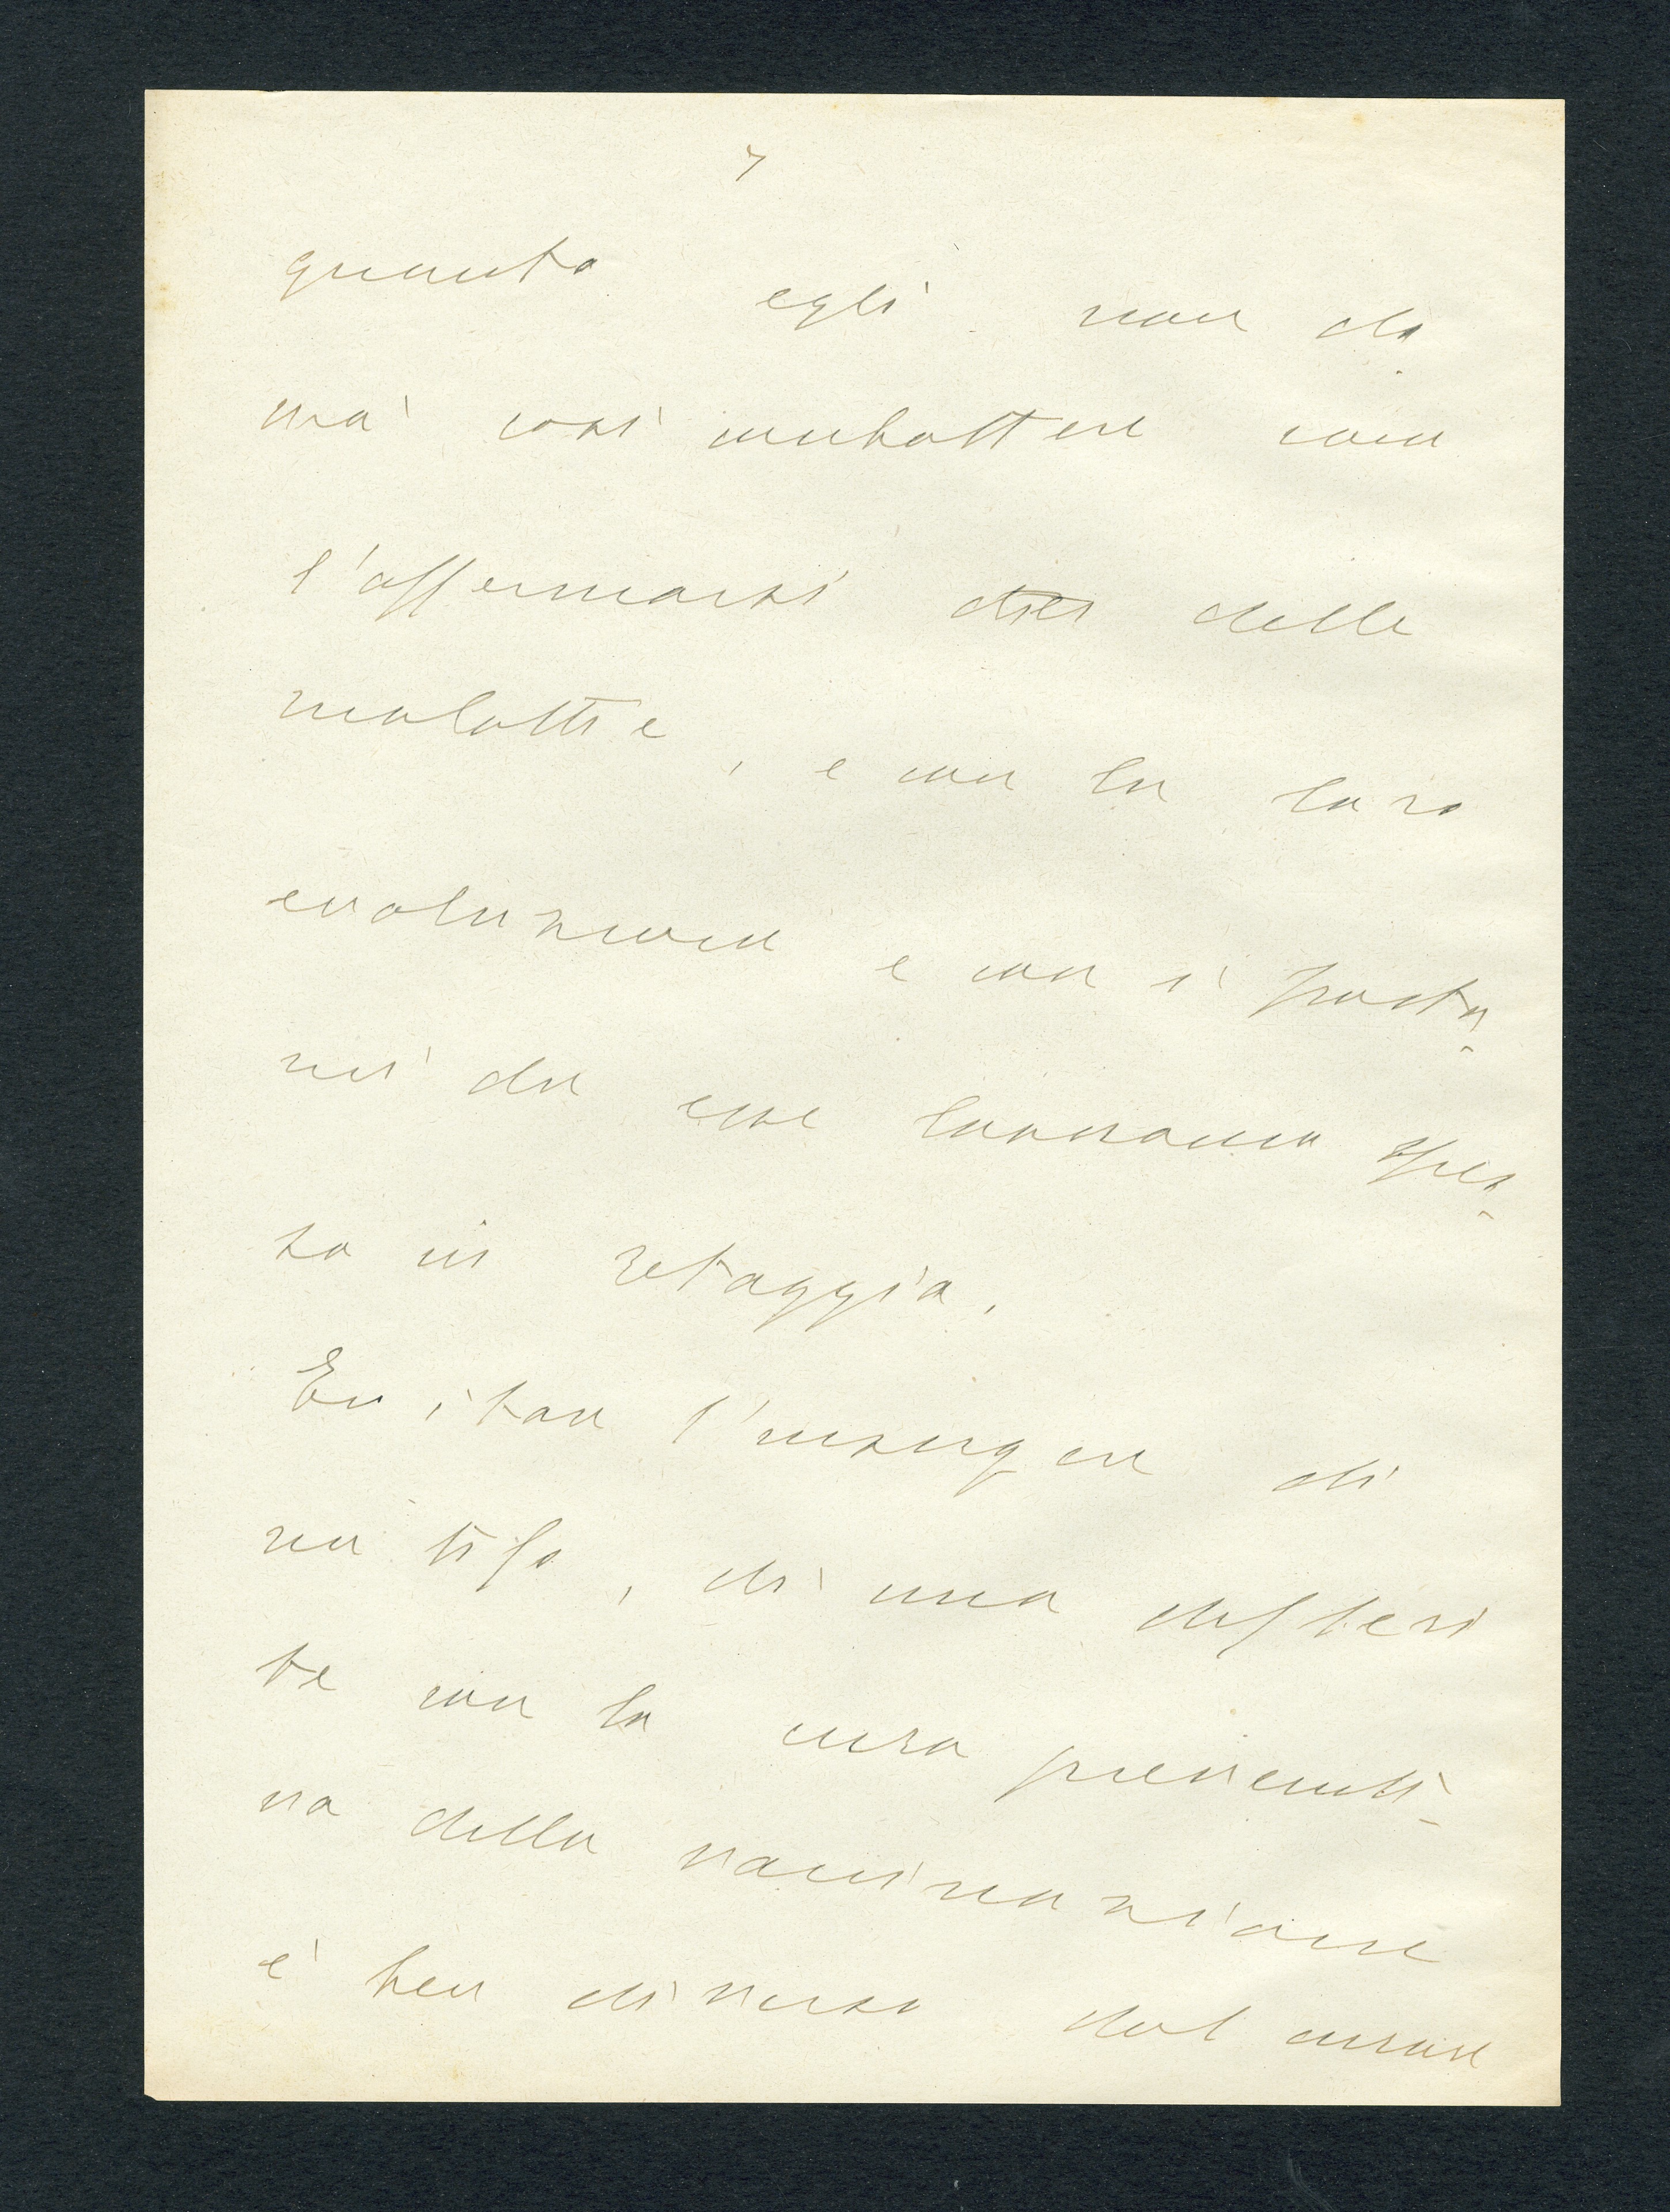 7
quanto egli non do
vrà così combattere con
l'affermarsi delle
malattie, e con la loro
evoluzione e con i postu-
mi da esse lasciano spes-
so in retaggio.
Evitare l'insorgere di
un tifo, di una difteri
te con la cura preventi-
va della vaccinazione
è ben diverso dal curare